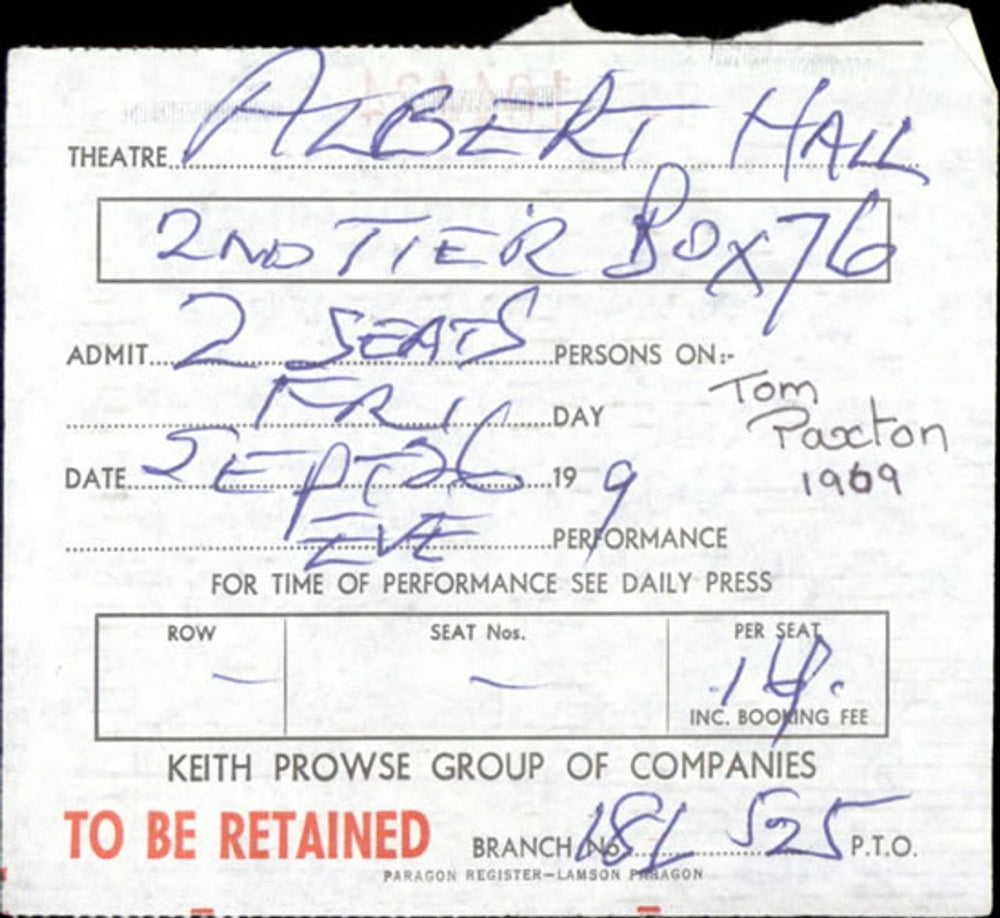 THEATRE ALBERT HALL
2ND TIER BOX 76
ADMIT 2 SEATS PERSONS ON:-
FRI DAY
Tom
Paxton
1969
DATE SEPT 26 19 9
EVE PERFORMANCE
FOR TIME OF PERFORMANCE SEE DAILY PRESS
ROW SEAT Nos. PER SEAT
— —
INC. BOOKING FEE
KEITH PROWSE GROUP OF COMPANIES
TO BE RETAINED BRANCH No. 525 P.T.O.
PARAGON REGISTER—LAMSON PARAGON